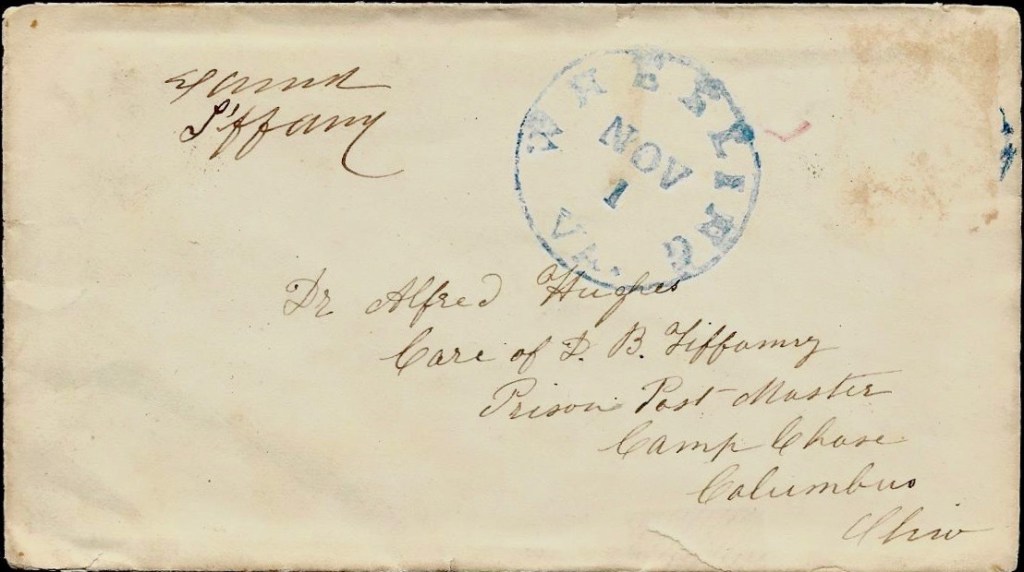 Exmd
Tiffany
WHEELING VA.
NOV
1
Dr Alfred Hughes
Care of D. B. Tiffany
Prison Post Master
Camp Chase
Columbus
Ohio